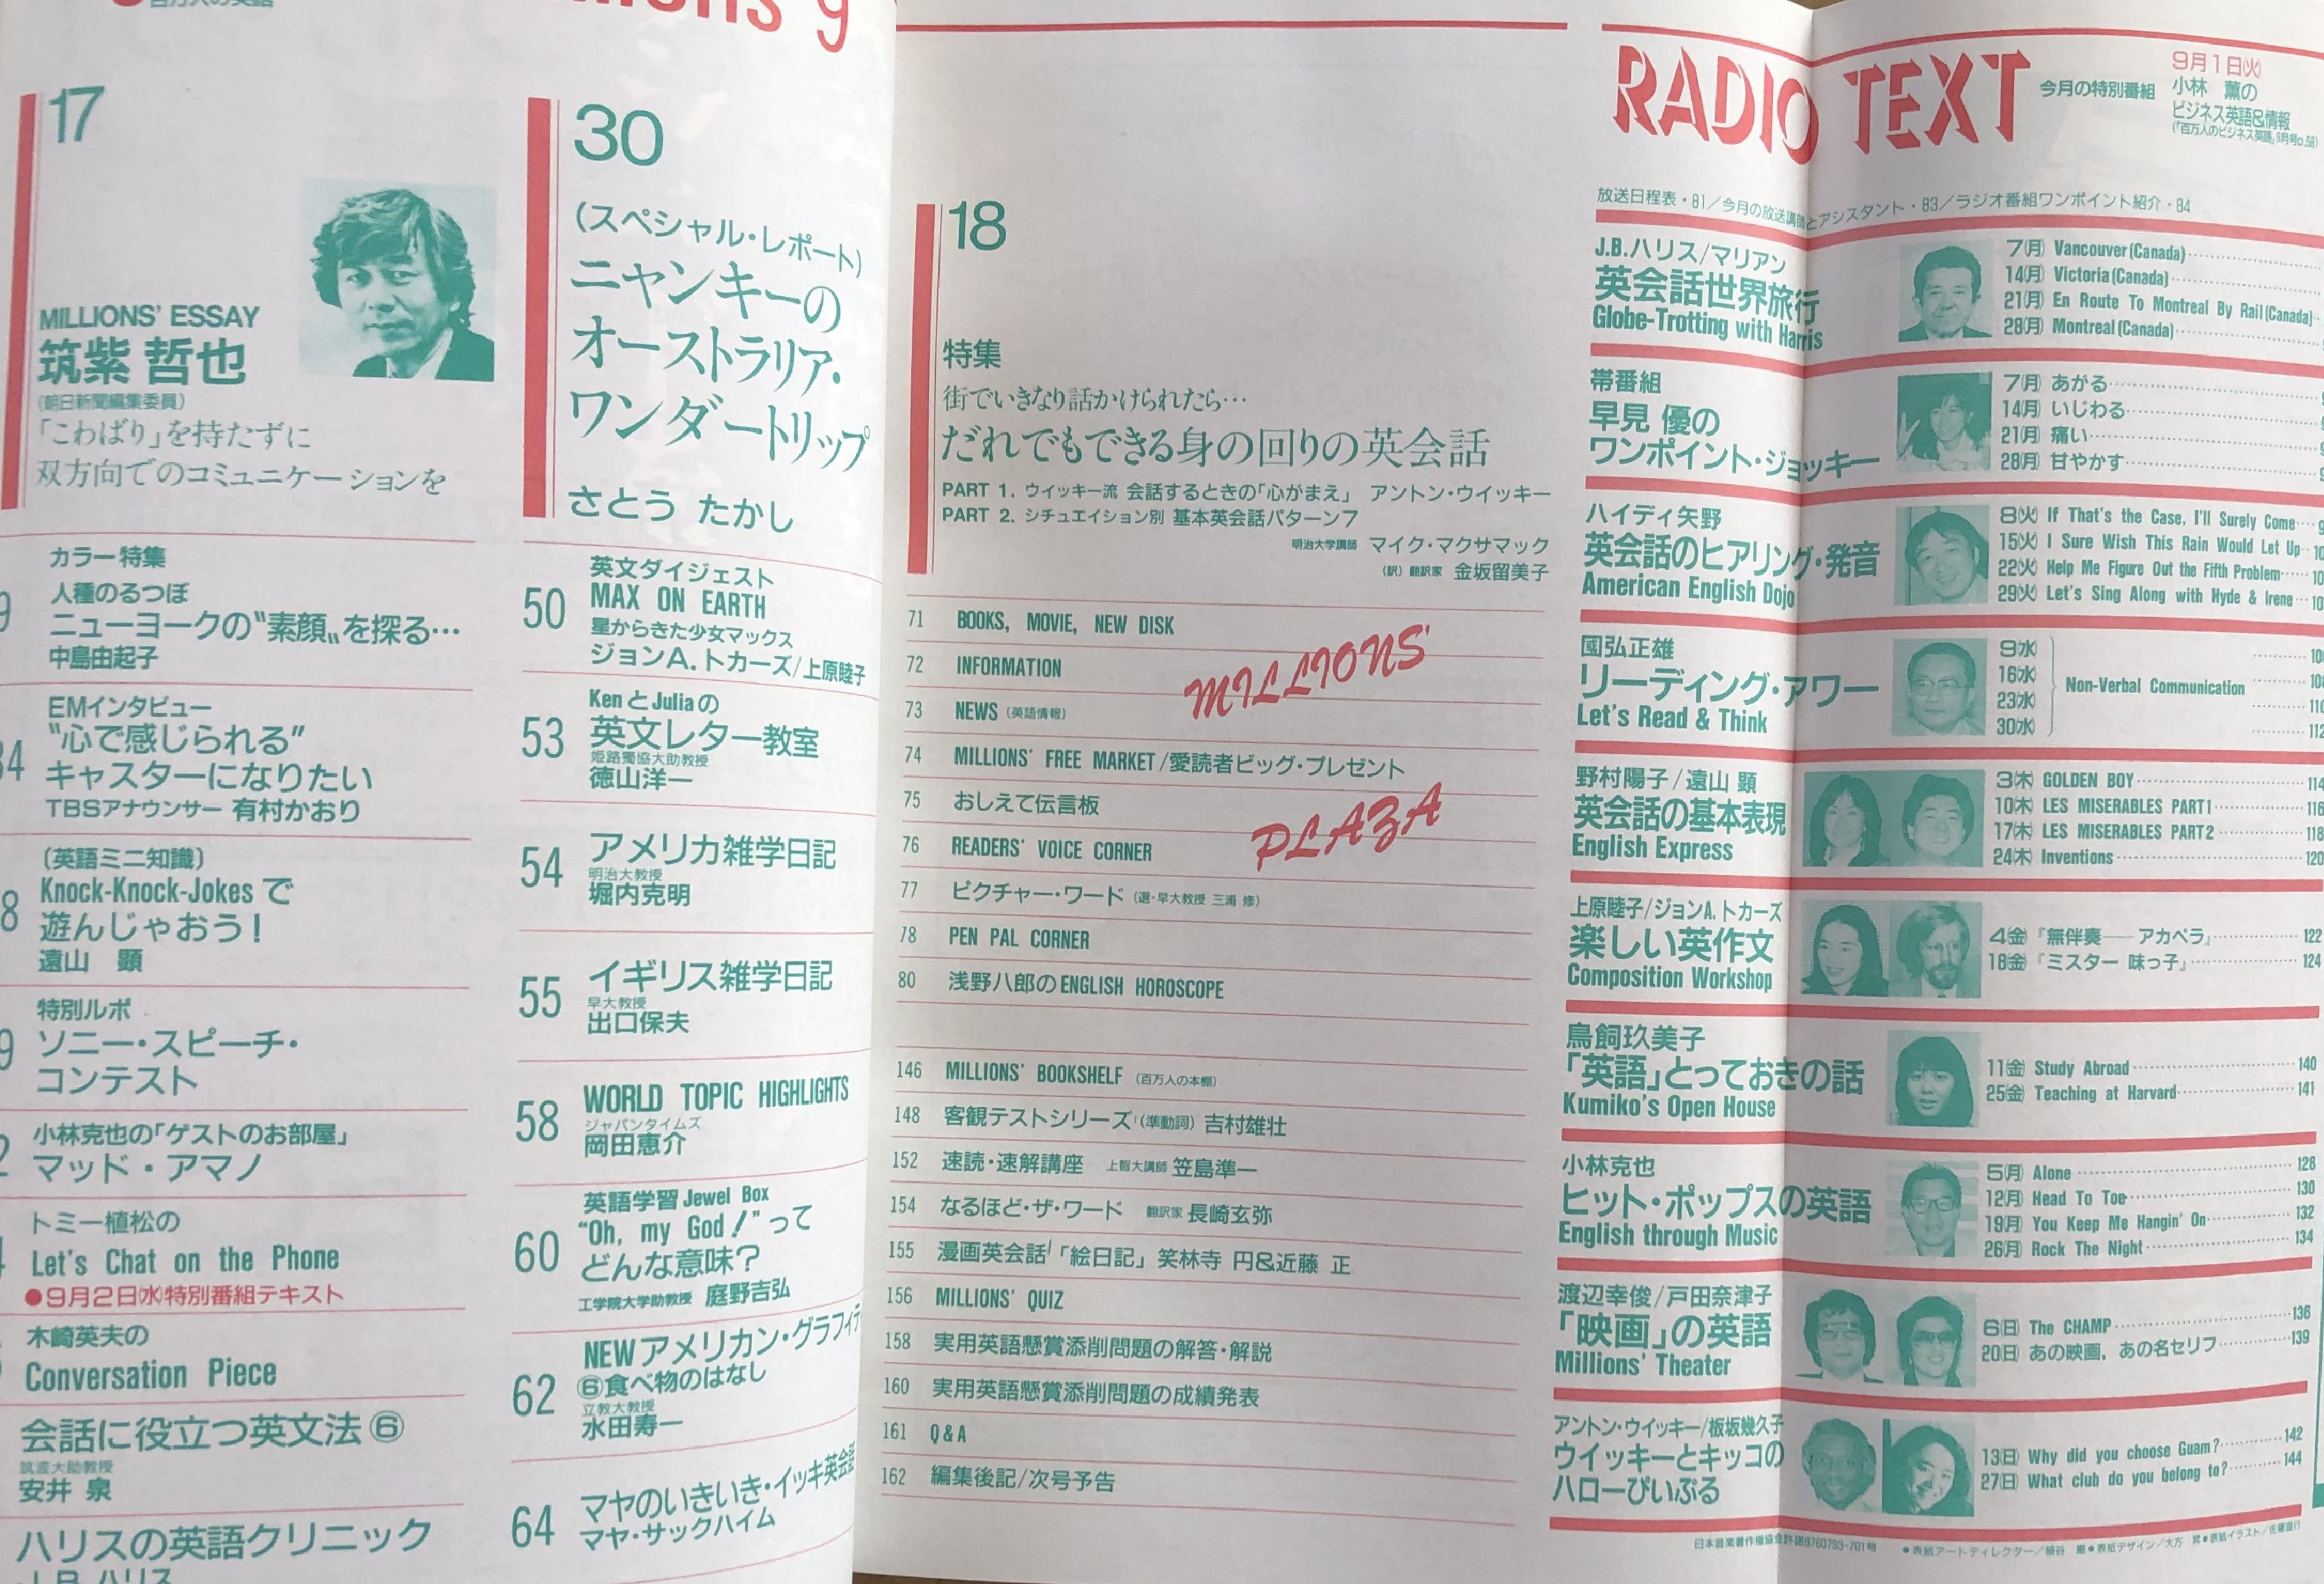 百万人の英語
9
17
MILLIONS' ESSAY
筑紫 哲也
(朝日新聞編集委員)
「こわばり」を持たずに
双方向でのコミュニケーションを
カラー特集
人種のるつぼ
ニューヨークの〝素顔〟を探る…
中島由起子
EMインタビュー
“心で感じられる”
キャスターになりたい
TBSアナウンサー 有村かおり
(英語ミニ知識)
Knock-Knock-Jokes で
遊んじゃおう!
遠山 顕
特別ルポ
ソニー・スピーチ・
コンテスト
小林克也の「ゲストのお部屋」
マッド・アマノ
トミー植松の
Let's Chat on the Phone
●9月2日㈬特別番組テキスト
木崎英夫の
Conversation Piece
会話に役立つ英文法⑥
筑波大助教授
安井 泉
ハリスの英語クリニック
J.B.ハリス
30
(スペシャル・レポート)
ニャンキーの
オーストラリア・
ワンダートリップ
さとう たかし
50
英文ダイジェスト
MAX ON EARTH
星からきた少女マックス
ジョンA.トカーズ/上原睦子
53
KenとJuliaの
英文レター教室
姫路獨協大助教授
徳山洋一
54
アメリカ雑学日記
明治大教授
堀内克明
55
イギリス雑学日記
早大教授
出口保夫
58
WORLD TOPIC HIGHLIGHTS
ジャパンタイムズ
岡田恵介
60
英語学習 Jewel Box
“Oh, my God!”って
どんな意味?
工学院大学助教授 庭野吉弘
62
NEWアメリカン・グラフィテ
⑥食べ物のはなし
立教大教授
水田寿一
64
マヤのいきいき・イッキ英会話
マヤ・サックハイム
18
特集
街でいきなり話かけられたら…
だれでもできる身の回りの英会話
PART 1. ウイッキー流 会話するときの「心がまえ」 アントン・ウイッキー
PART 2. シチュエイション別 基本英会話パターン7
明治大学講師 マイク・マクサマック
(訳) 翻訳家 金坂留美子
MILLIONS'
PLAZA
71 BOOKS, MOVIE, NEW DISK
72 INFORMATION
73 NEWS (英語情報)
74 MILLIONS' FREE MARKET/愛読者ビッグ・プレゼント
75 おしえて伝言板
76 READERS' VOICE CORNER
77 ピクチャー・ワード (選・早大教授 三浦 修)
78 PEN PAL CORNER
80 浅野八郎のENGLISH HOROSCOPE
146 MILLIONS' BOOKSHELF (百万人の本棚)
148 客観テストシリーズ (準動詞) 吉村雄壮
152 速読・速解講座 上智大講師 笠島準一
154 なるほど・ザ・ワード 翻訳家 長崎玄弥
155 漫画英会話「絵日記」笑林寺 円&近藤 正
156 MILLIONS' QUIZ
158 実用英語懸賞添削問題の解答・解説
160 実用英語懸賞添削問題の成績発表
161 Q&A
162 編集後記/次号予告
RADIO TEXT
今月の特別番組
9月1日㈫
小林 薫の
ビジネス英語&情報
(「百万人のビジネス英語」9月号p.58)
放送日程表・81/今月の放送講師とアシスタント・83/ラジオ番組ワンポイント紹介・84
J.B.ハリス/マリアン
英会話世界旅行
Globe-Trotting with Harris
7㈪ Vancouver(Canada)
14㈪ Victoria(Canada)
21㈪ En Route To Montreal By Rail(Canada)
28㈪ Montreal(Canada)
帯番組
早見 優の
ワンポイント・ジョッキー
7㈪ あがる
14㈪ いじわる
21㈪ 痛い
28㈪ 甘やかす
ハイディ矢野
英会話のヒアリング・発音
American English Dojo
8㈫ If That's the Case, I'll Surely Come
15㈫ I Sure Wish This Rain Would Let Up
22㈫ Help Me Figure Out the Fifth Problem
29㈫ Let's Sing Along with Hyde & Irene
國弘正雄
リーディング・アワー
Let's Read & Think
9㈬
16㈬
23㈬
30㈬
Non-Verbal Communication
112
野村陽子/遠山 顕
英会話の基本表現
English Express
3㈭ GOLDEN BOY 114
10㈭ LES MISERABLES PART1 116
17㈭ LES MISERABLES PART2 118
24㈭ Inventions 120
上原睦子/ジョンA.トカーズ
楽しい英作文
Composition Workshop
4㈮『無伴奏──アカペラ』 122
18㈮『ミスター 味っ子』 124
鳥飼玖美子
「英語」とっておきの話
Kumiko's Open House
11㈮ Study Abroad 140
25㈮ Teaching at Harvard 141
小林克也
ヒット・ポップスの英語
English through Music
5㈪ Alone 128
12㈪ Head To Toe 130
19㈪ You Keep Me Hangin' On 132
26㈪ Rock The Night 134
渡辺幸俊/戸田奈津子
「映画」の英語
Millions' Theater
6㈰ The CHAMP 136
20㈰ あの映画，あの名セリフ 139
アントン・ウイッキー/板坂幾久子
ウイッキーとキッコの
ハローぴいぷる
13㈰ Why did you choose Guam? 142
27㈰ What club do you belong to? 144
日本音楽著作権協会許諾8760793-701号
●表紙アートディレクター/細谷 巖●表紙デザイン/大万 昇●表紙イラスト/佐藤直行